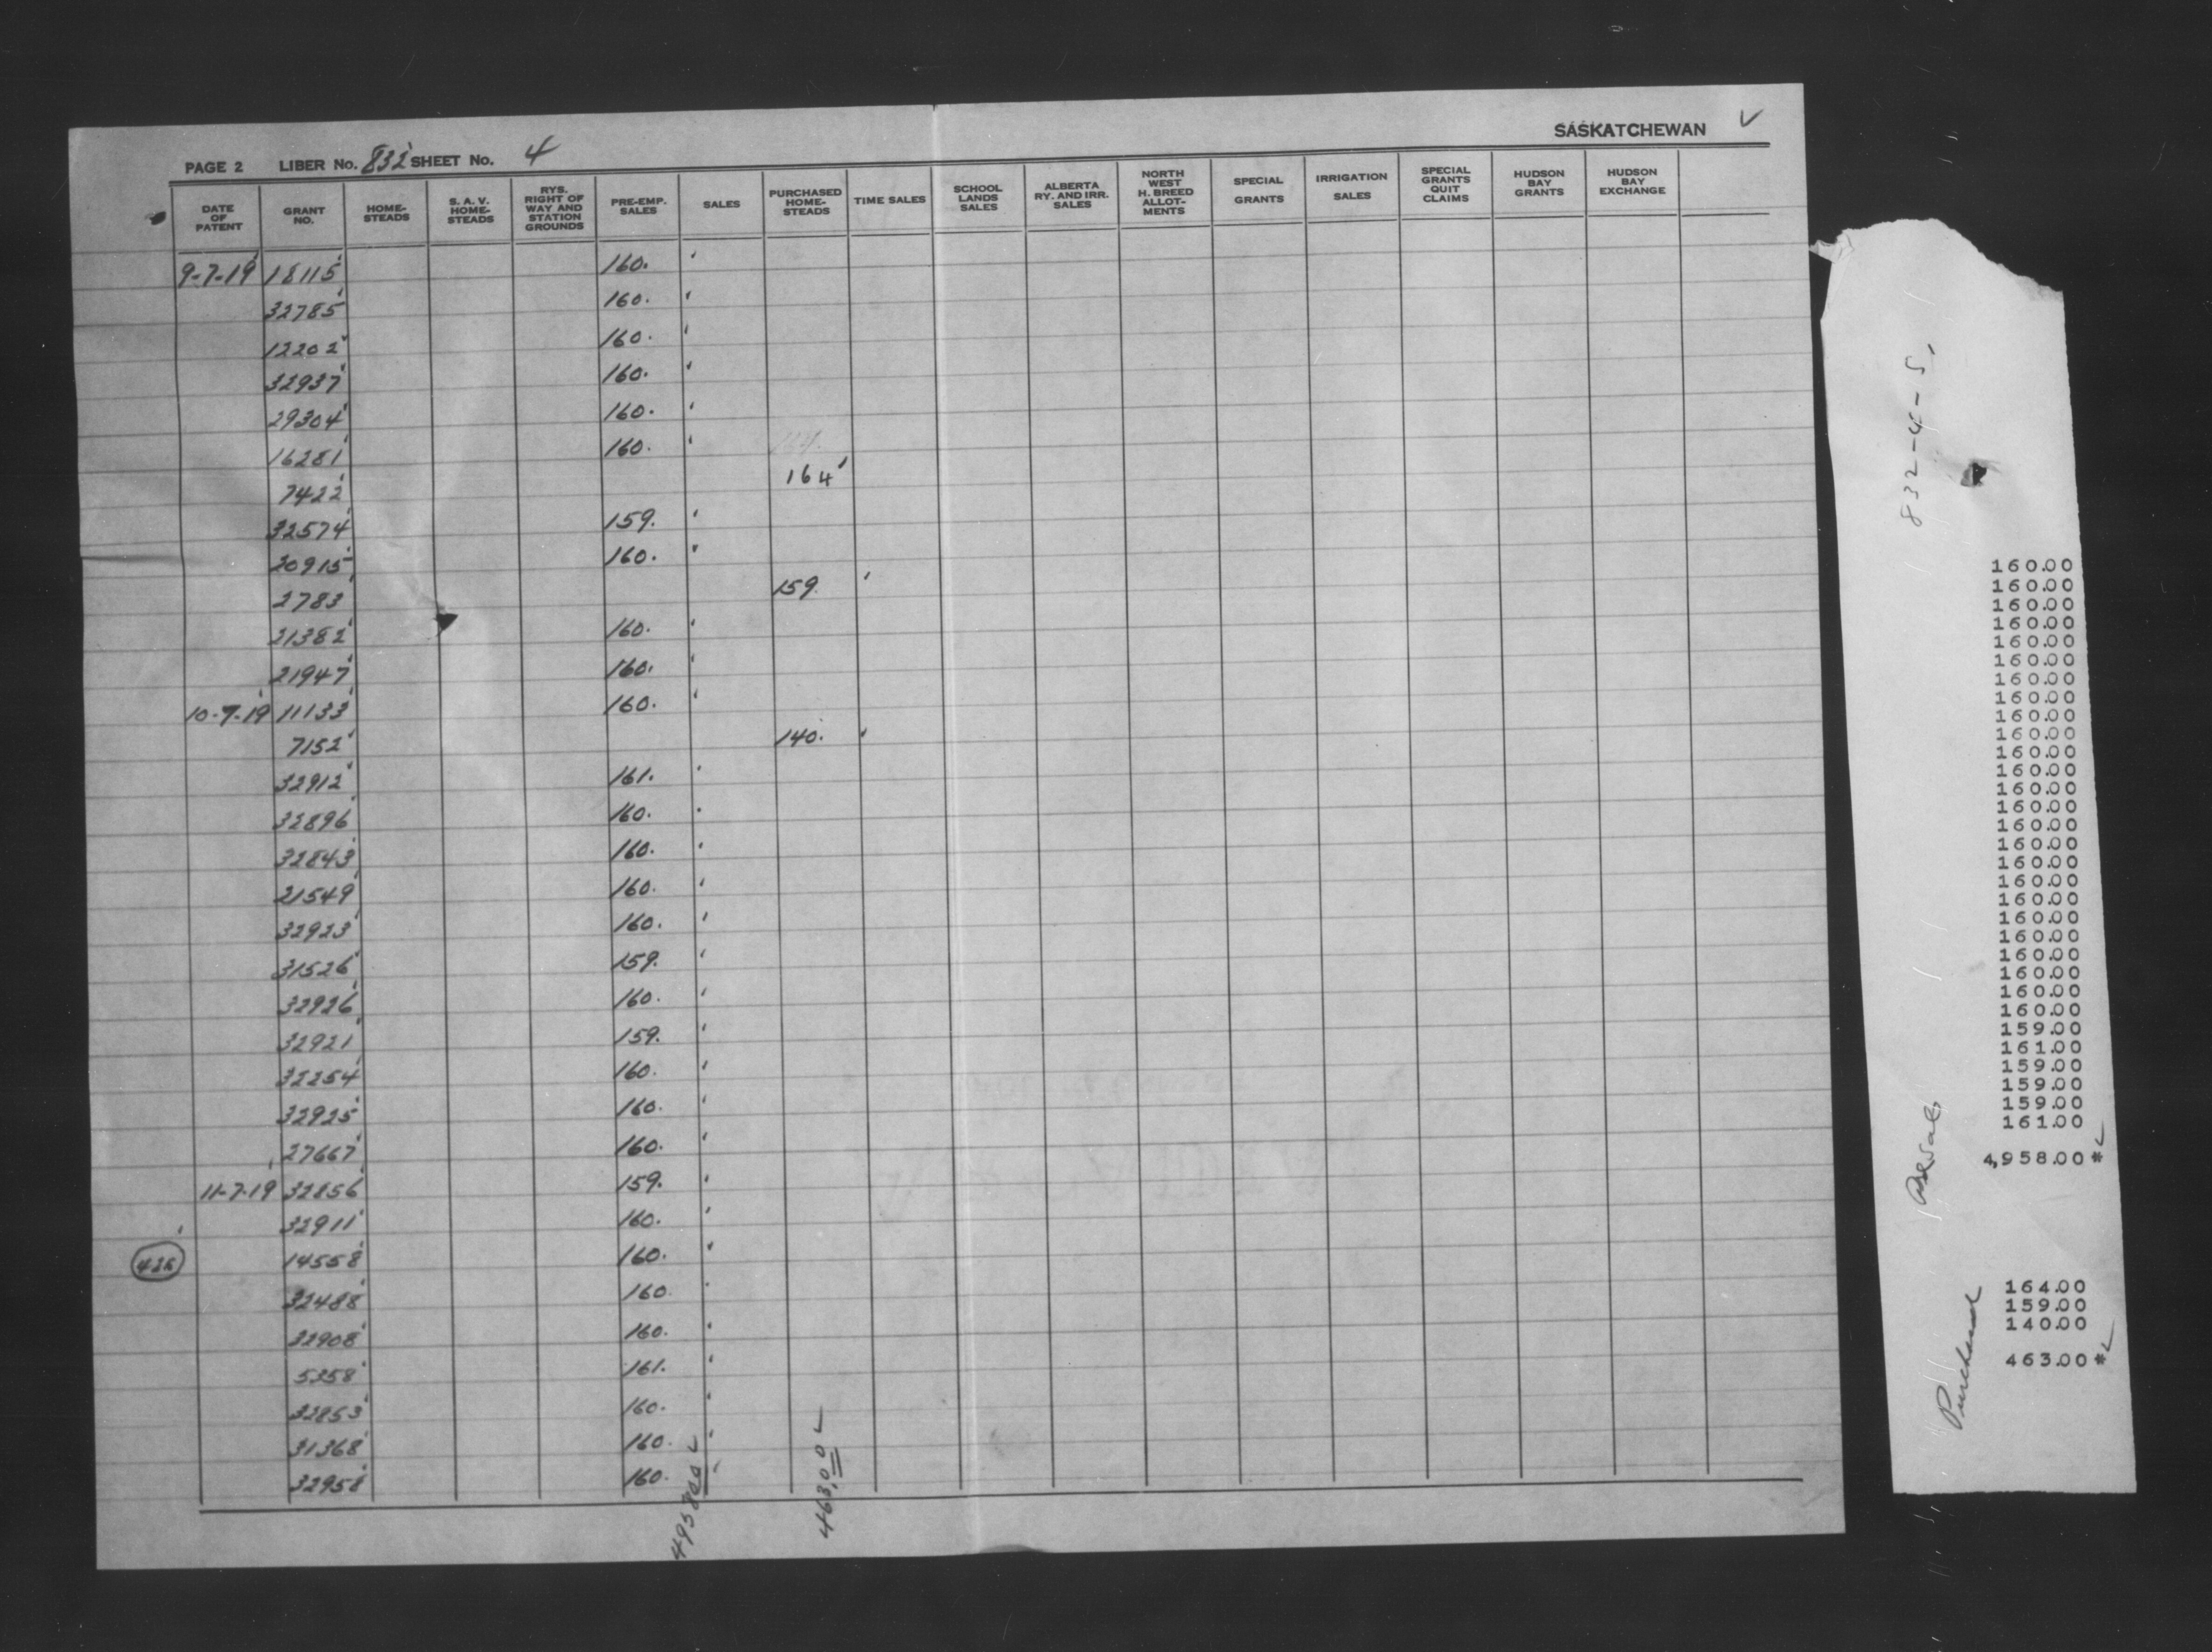 SASKATCHEWAN ✓
PAGE 2 LIBER No. 832 SHEET No. 4
DATE OF PATENT GRANT NO. HOME-STEADS S. A. V. HOME-STEADS RYS. RIGHT OF WAY AND STATION GROUNDS PRE-EMP. SALES SALES PURCHASED HOME-STEADS TIME SALES SCHOOL LANDS SALES ALBERTA RY. AND IRR. SALES NORTH WEST H. BREED ALLOT-MENTS SPECIAL GRANTS IRRIGATION SALES SPECIAL GRANTS QUIT CLAIMS HUDSON BAY GRANTS HUDSON BAY EXCHANGE
9-7-19 18115 160.
32785 160.
12202 160.
32937 160.
29304 160.
16281 160.
7422 164
32574 159.
20915 160.
2783 159.
21382 160.
21947 160.
10-7-19 11133 160.
7152 140.
32912 161.
32896 160.
32843 160.
21549 160.
32923 160.
31526 159.
32926 160.
32921 159.
32254 160.
32925 160.
27667 160.
11-7-19 32856 159.
32911 160.
14558 160.
32488 160
32908 160.
5358 161.
32853 160.
31368 160.
32958 160.
4958.00 463.00
832-4-S.
160.00
160.00
160.00
160.00
160.00
160.00
160.00
160.00
160.00
160.00
160.00
160.00
160.00
160.00
160.00
160.00
160.00
160.00
160.00
160.00
160.00
160.00
160.00
160.00
160.00
159.00
161.00
159.00
159.00
159.00
161.00
4,958.00*
Purchased
164.00
159.00
140.00
463.00*